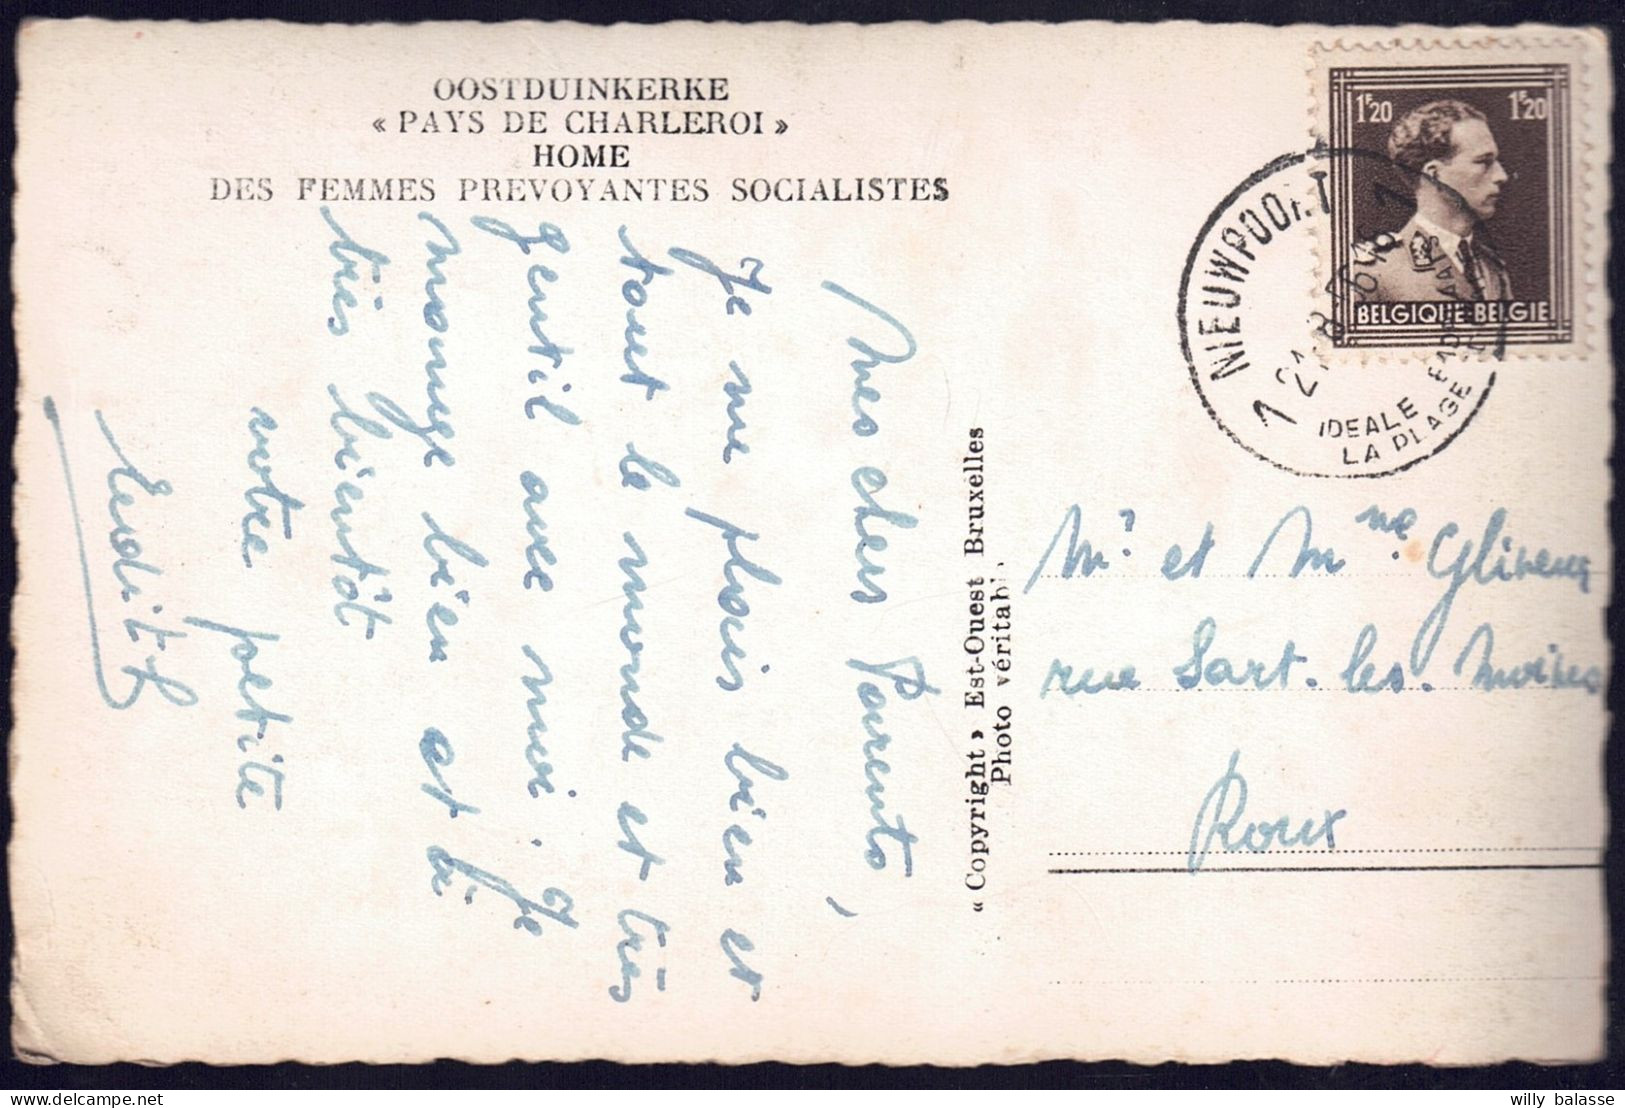 OOSTDUINKERKE
« PAYS DE CHARLEROI »
HOME
DES FEMMES PREVOYANTES SOCIALISTES
Mes chers Parents,
Je me plais bien et
tout le monde est très
gentil avec moi. Je
mange bien et à
très bientôt
votre petite
Edith
« Copyright » Est-Ouest Bruxelles
Photo véritab
1F20 1F20
BELGIQUE-BELGIE
NIEUWPOORT
1
21
8
IDEALE
LA PLAGE
Mr et Mme
rue Sart-les-Moines
Roux
willy balasse